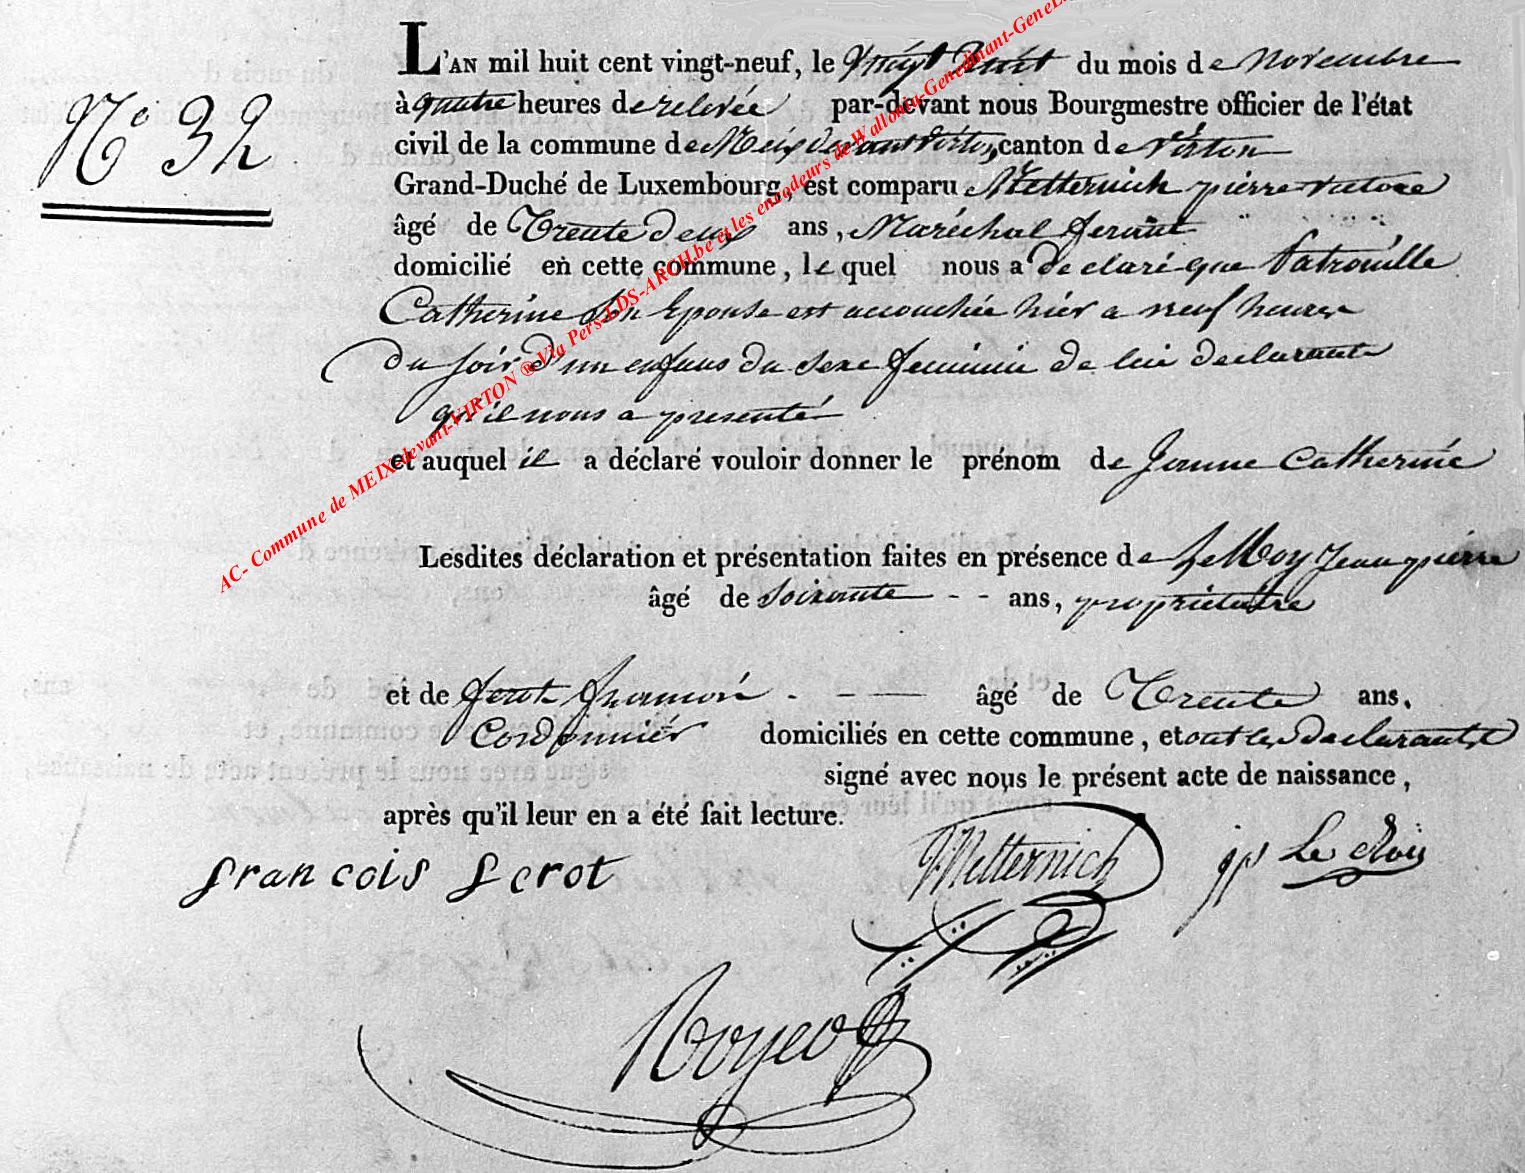 N° 32
L'AN mil huit cent vingt-neuf, le vingt huit du mois de novembre
à quatre heures de relevée par-devant nous Bourgmestre officier de l'état
civil de la commune de Meix devant Virton, canton de Virton
Grand-Duché de Luxembourg, est comparu Metternich pierre victore
âgé de Trente deux ans, Maréchal ferant
domicilié en cette commune, le quel nous a declaré que Patrouille
Catherine son Epouse est accouchée hier a neuf heures
du soir d'un enfans du sexe feminin de lui declarante
qu'il nous a presenté
et auquel il a déclaré vouloir donner le prénom de Jeanne Catherine
Lesdites déclaration et présentation faites en présence de Le Roy Jean pierre
âgé de soixante - - ans, propriétaire
et de françois - - — âgé de Trente ans,
Cordonnier domiciliés en cette commune, et ont les declarants
signé avec nous le présent acte de naissance,
après qu'il leur en a été fait lecture.
francois ferot Metternich jp Le Roy
AC- Commune de MEIX-devant-VIRTON ® Via Pers-LDS-ARCH.be et les encodeurs de Wallonia-Genedinant-GeneL